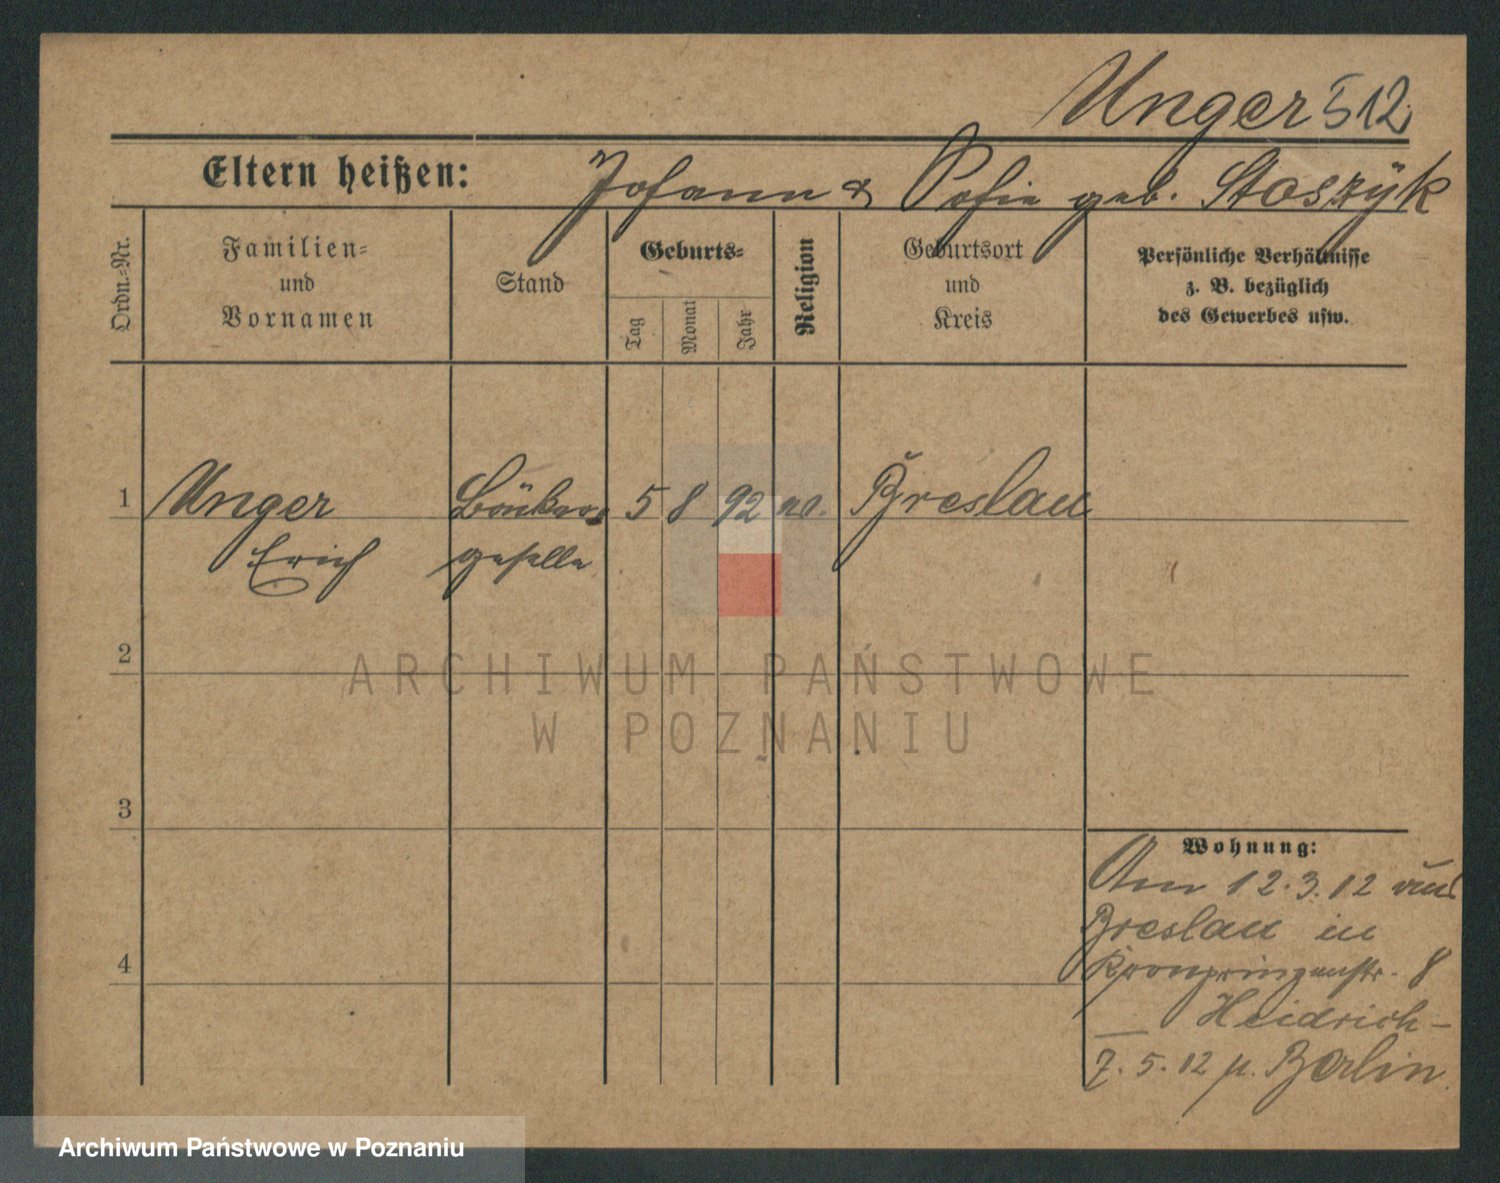 Unger 512
Eltern heißen: Johann & Sofie geb. Stoszÿk
Ordn.-Nr.
Familien-
und
Vornamen
Stand
Geburts-
Tag
Monat
Jahr
Religion
Geburtsort
und
Kreis
Persönliche Verhältnisse
z. B. bezüglich
des Gewerbes usw.
1 Unger 5 8 92 Breslau
Erich geselle
2
3
4
Wohnung:
Am 12.3.12 aus
Breslau in
Kronprinzenstr. 8
Heidrich-
7.5.12 n. Berlin
ARCHIWUM PAŃSTWOWE
W POZNANIU
Archiwum Państwowe w Poznaniu